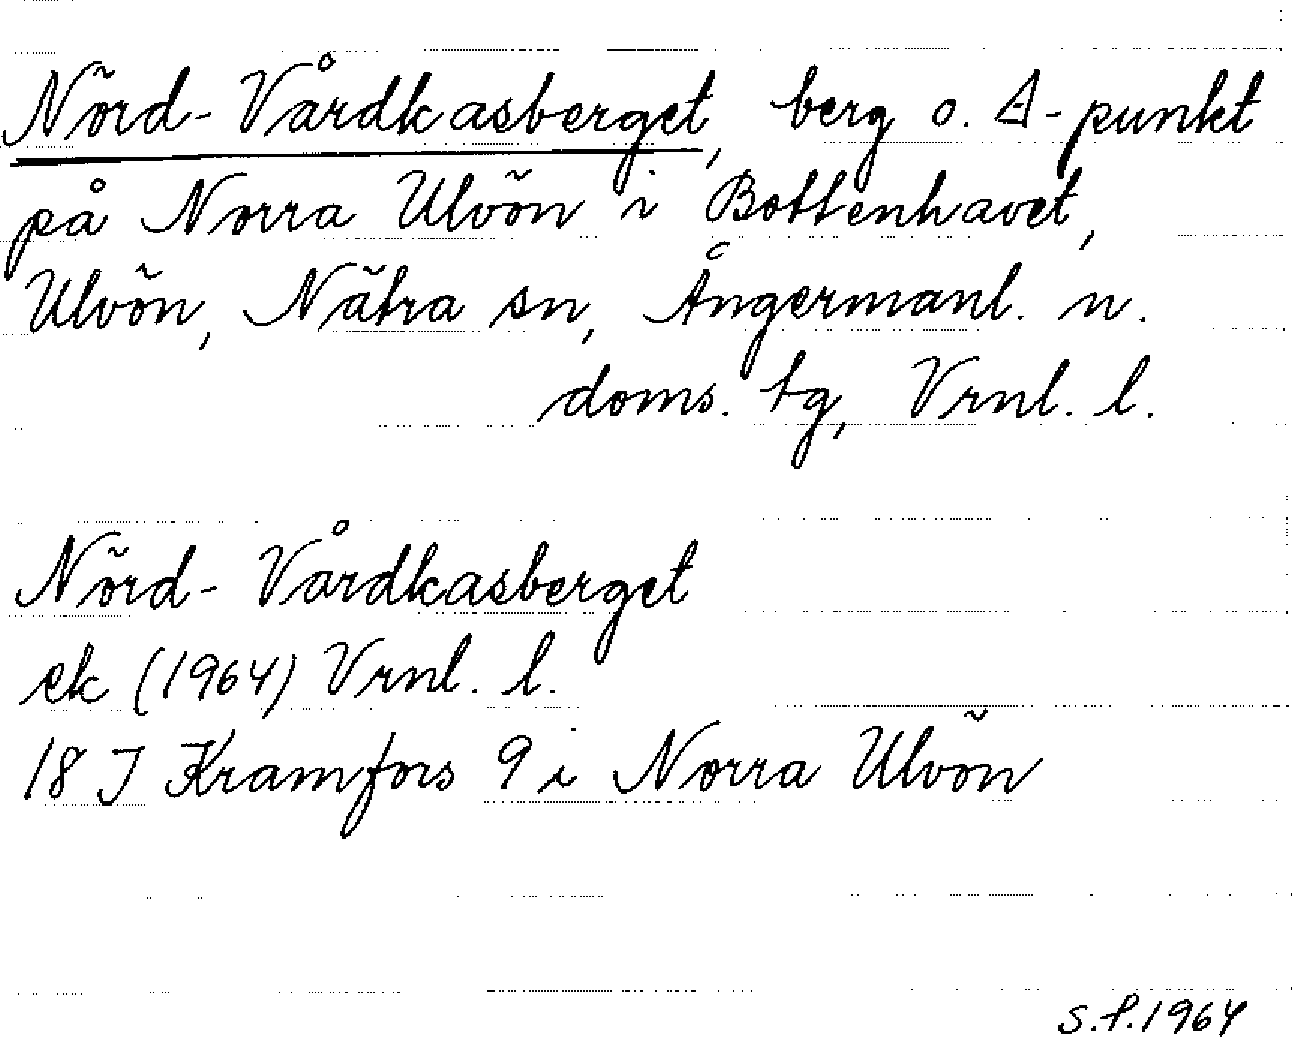 Nörd-Vårdkasberget, berg o. Δ-punkt
på Norra Ulvön i Bottenhavet,
Ulvön, Nätra sn, Ångermanl. n.
doms. tg, Vrnl. l.
Nörd-Vårdkasberget
ek (1964) Vrnl. l.
18 J Kramfors 9 i Norra Ulvön
S.f.1964